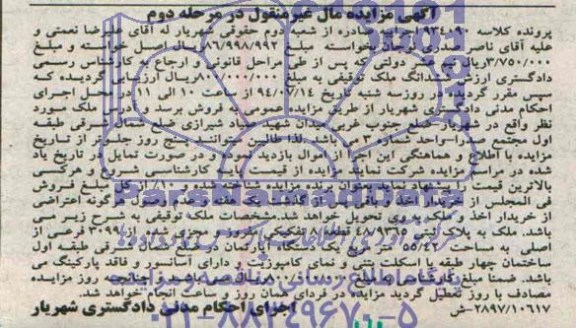 آگهی مزایده مال غیرمنقول در مرحله دوم
پرونده کلاسه ۹۳۴۰۹۰ اجرائیه صادره از شعبه دوم حقوقی شهریار له آقای علیرضا نعمتی و
علیه آقای ناصر صدری قوجان بخواسته مبلغ ۸۶/۹۹۸/۹۹۲ریال اصل خواسته و مبلغ
۳/۷۵۰/۰۰۰ریال نیم عشر دولتی که پس از طی مراحل قانونی و ارجاع به کارشناس رسمی
دادگستری ارزش ششدانگ ملک توقیفی به مبلغ ۸۰۰/۰۰۰/۰۰۰ریال ارزیابی گردیده که
سپس مقرر گردیده در روز سه شنبه تاریخ ۹۴/۰۷/۱۴ از ساعت ۱۰ الی ۱۱ در محل اجرای
احکام مدنی دادگستری شهریار از طریق مزایده عمومی به فروش برسد و آدرس ملک مورد
نظر واقع در شهریار ضلع جنوب غربی میدان شهید شیرازی ضلع شمال شرقی طبقه
اول مجتمع صدرا واحد شماره می باشد. لذا طالبین میتوانند پنج روز جلوتر از تاریخ
مزایده با اطلاع و هماهنگی این اجرا از اموال بازدید نموده و در صورت تمایل در تاریخ یاد
شده در مراسم مزایده شرکت نمایند مزایده از قیمت پایه کارشناسی شروع و هرکسی
بالاترین قیمت را پیشنهاد نماید بعنوان برنده مزایده شناخته شده و ۱۰٪ از کل مبلغ فروش
فی المجلس از خریدار اخذ و مابقی پس از گذشت یک هفته و عدم وصول هرگونه اعتراضی
از خریدار اخذ و ملک به وی تحویل خواهد شد. مشخصات ملک توقیفی به شرح زیر می
باشد. ملک به پلاک ثبتی ۴۸/۹۳۶۵ قطعه ۸ تفکیکی مفروز و مجزی شده از ۳۰۹۹ فرعی از
اصلی به مساحت ۵۵/۴۲ متر مربع یک دستگاه آپارتمان در ضلع شمال شرقی طبقه اول
ساختمان چهار طبقه با اسکلت بتنی و نمای کامپوزیت و دارای آسانسور و فاقد پارکینگ می
باشد. ضمنا مبلغ کارشناسی به مبلغ ۸۰۰/۰۰۰/۰۰۰ریال می باشد. چنانچه روز مزایده
مصادف با روز تعطیل گردید مزایده در فردای همان روز و ساعت انجام خواهد شد.
۲۸۹۷/۱۰۶۱۷-ش اجرای احکام مدنی دادگستری شهریار
۰۲۱-۸۸۳۴۹۶۷۰-۵